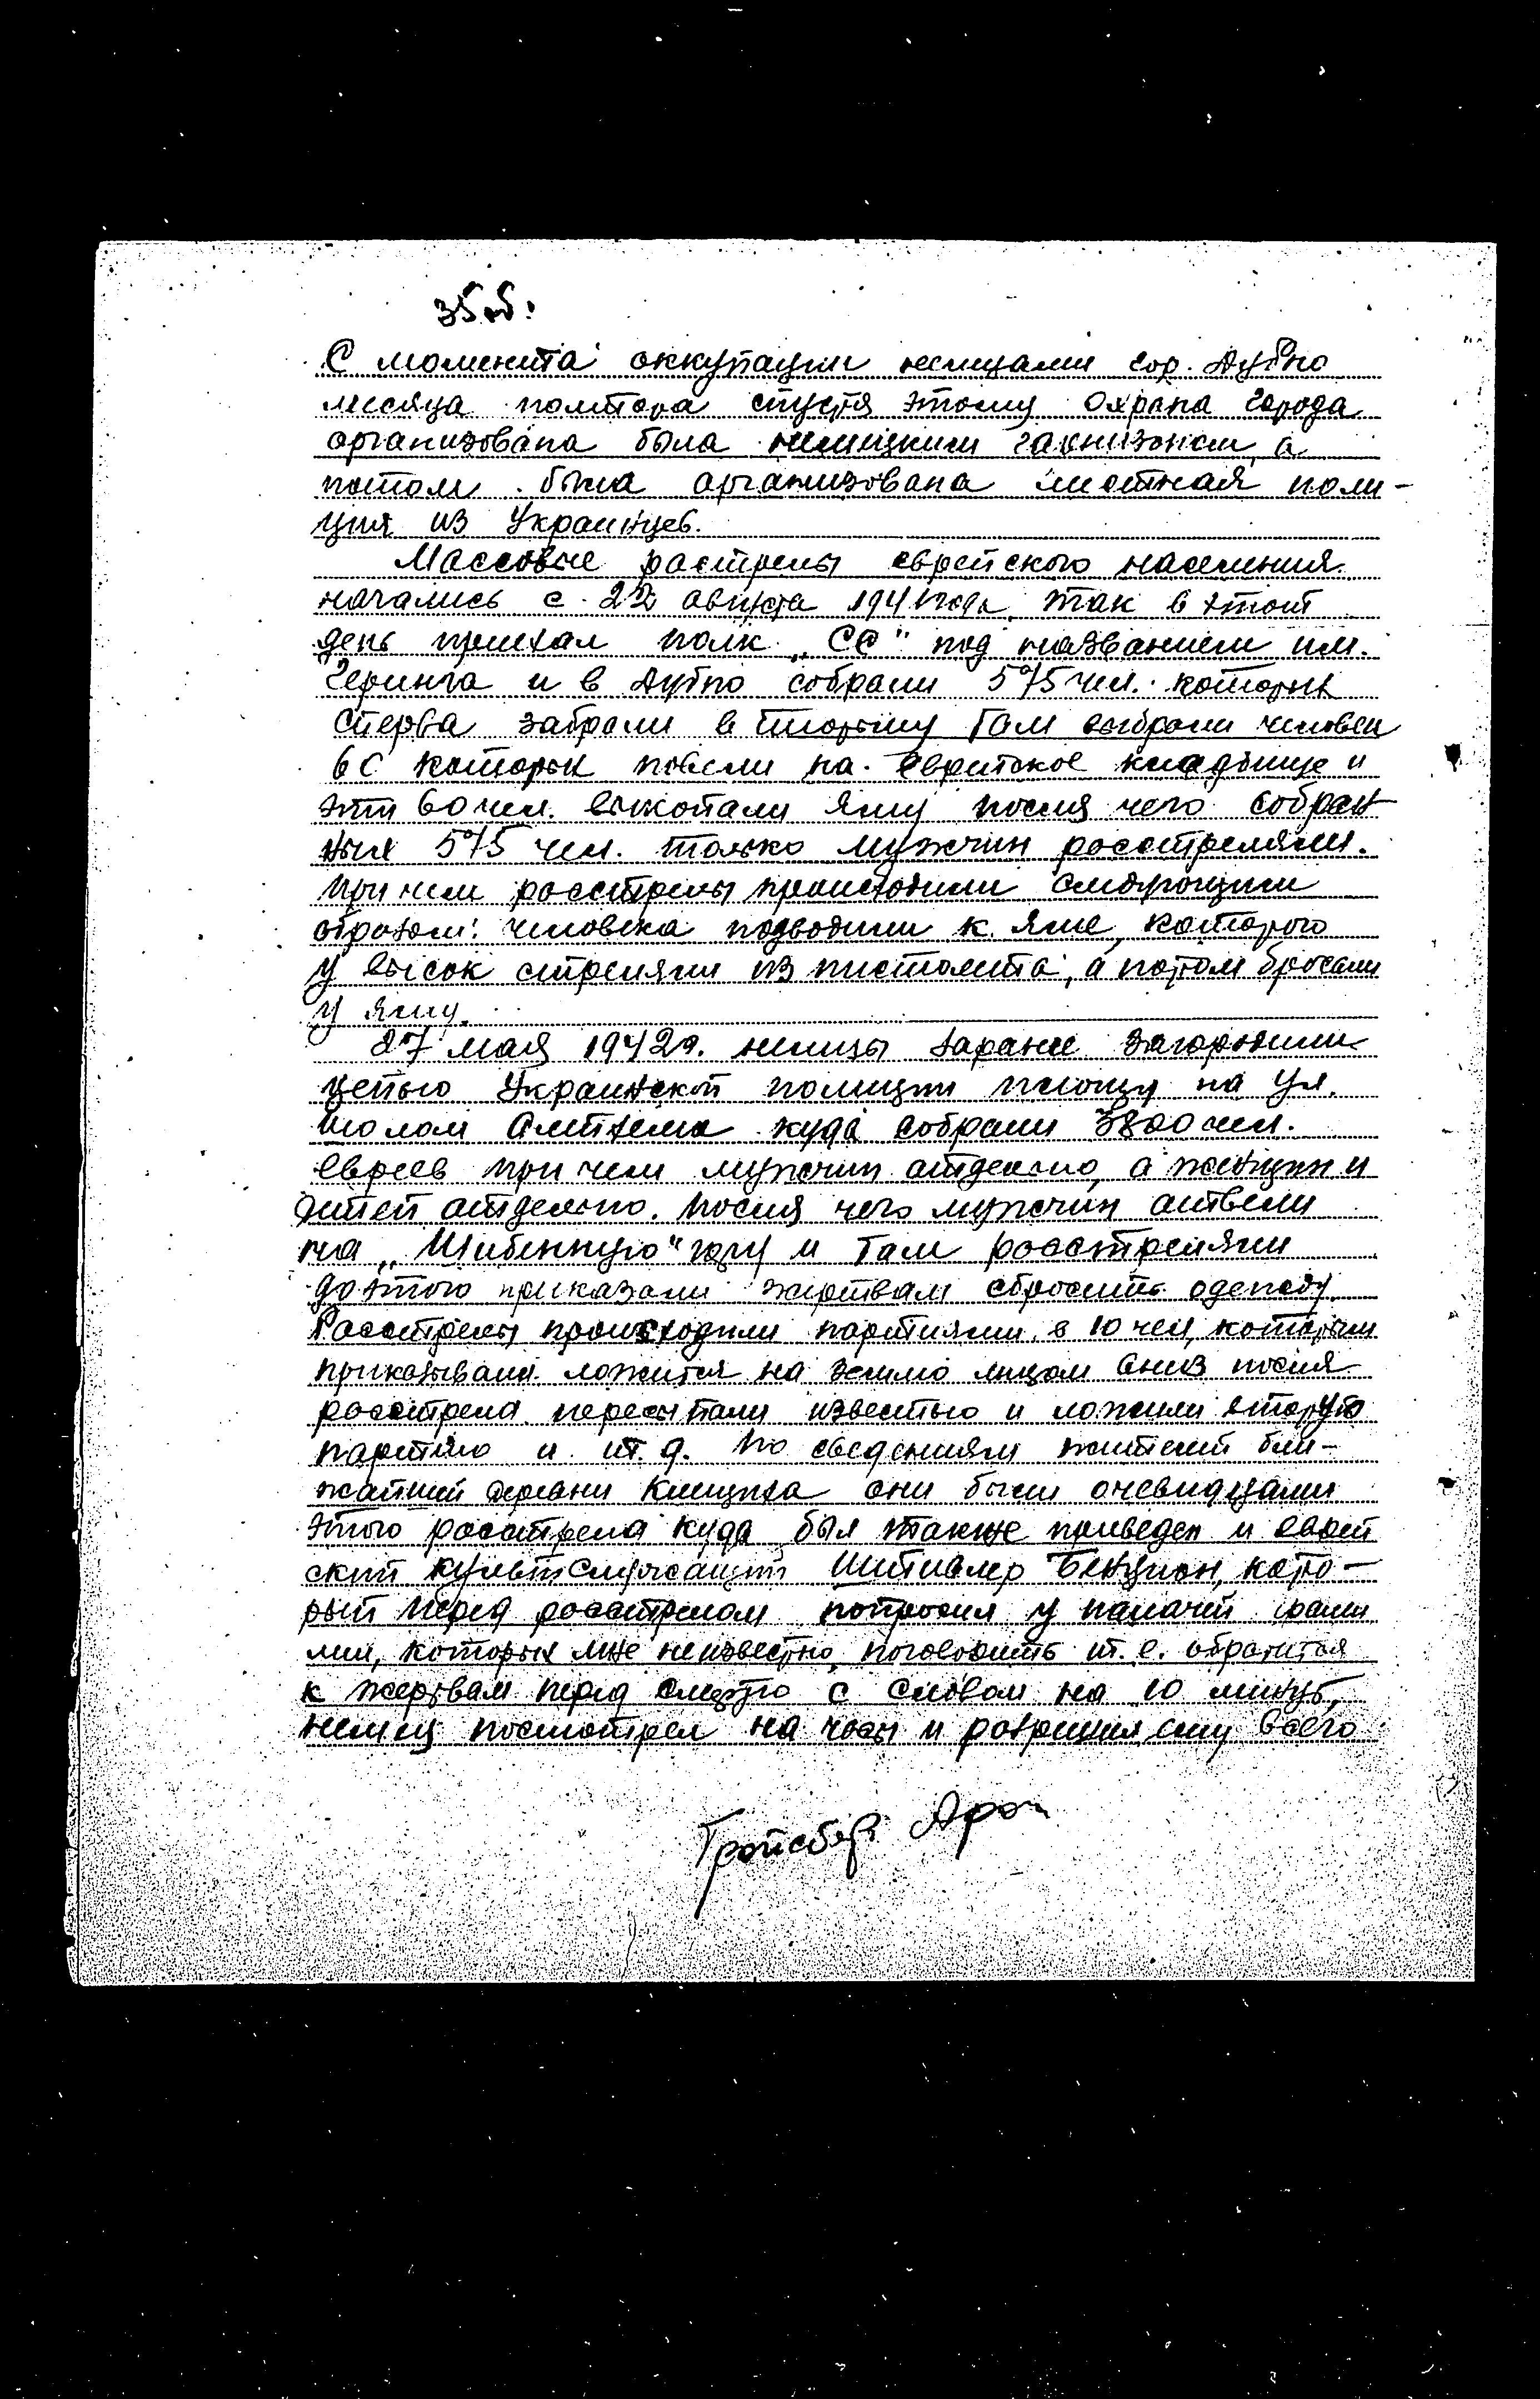 35 об.
С момента оккупации немцами гор. Дубно
месяца полтора спустя этому охрана города
организована была немецким гарнизоном, а
потом была организована местная поли-
ция из Украинцев.
Массовые растрелы еврейского населения
начались с 22 августа 1941 года, так в этот
день приехал полк „СС" под названием им.
Геринга и в Дубно собрали 575 чел. которых
сперва забрали в тюрьму там выбрали человек
60 которых повели на Еврейское кладбище и
эти 60 чел. выкопали яму после чего собран
ных 575 чел. только мужчин расстреляли.
При чем расстрелы происходили следующим
образом: человека подводили к яме, которого
у висок стреляли из пистолета, а потом бросали
у яму.
27 мая 1942 г. немцы заранее загородили
цепью Украинской полиции площу на ул.
Шолом Алейхема куда собрали 3800 чел.
евреев при чем мужчин отдельно, а женщин и
детей отдельно. После чего мужчин отвели
на „Шибенную" гору и там расстреляли
до этого приказали жертвам сбросить одежду.
Расстрелы происходили партиями в 10 чел, которым
приказывали ложится на землю лицом вниз после
расстрела пересыпали известью и ложили вторую
партию и т. д. По сведениям жителей бли-
жайшей деревни они были очевидцами
этого расстрела куда был также приведен и еврей
ский культслужащий Бенцион, кото-
рый перед расстрелом попросил у палачей фами
лии, которых мне неизвестно, поговорить т. е. обратится
к жертвам перед смертю с словом на 10 минут,
немец посмотрел на часы и разрешил ему всего
Гройсберг Арон